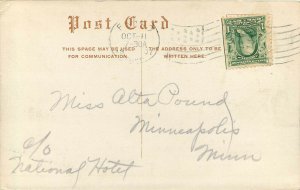 Post Card
THIS SPACE MAY BE USED
FOR COMMUNICATION.
THE ADDRESS ONLY TO BE
WRITTEN HERE.
OCT 11
Miss Alta Pound
Minneapolis
Minn
c/o
National Hotel